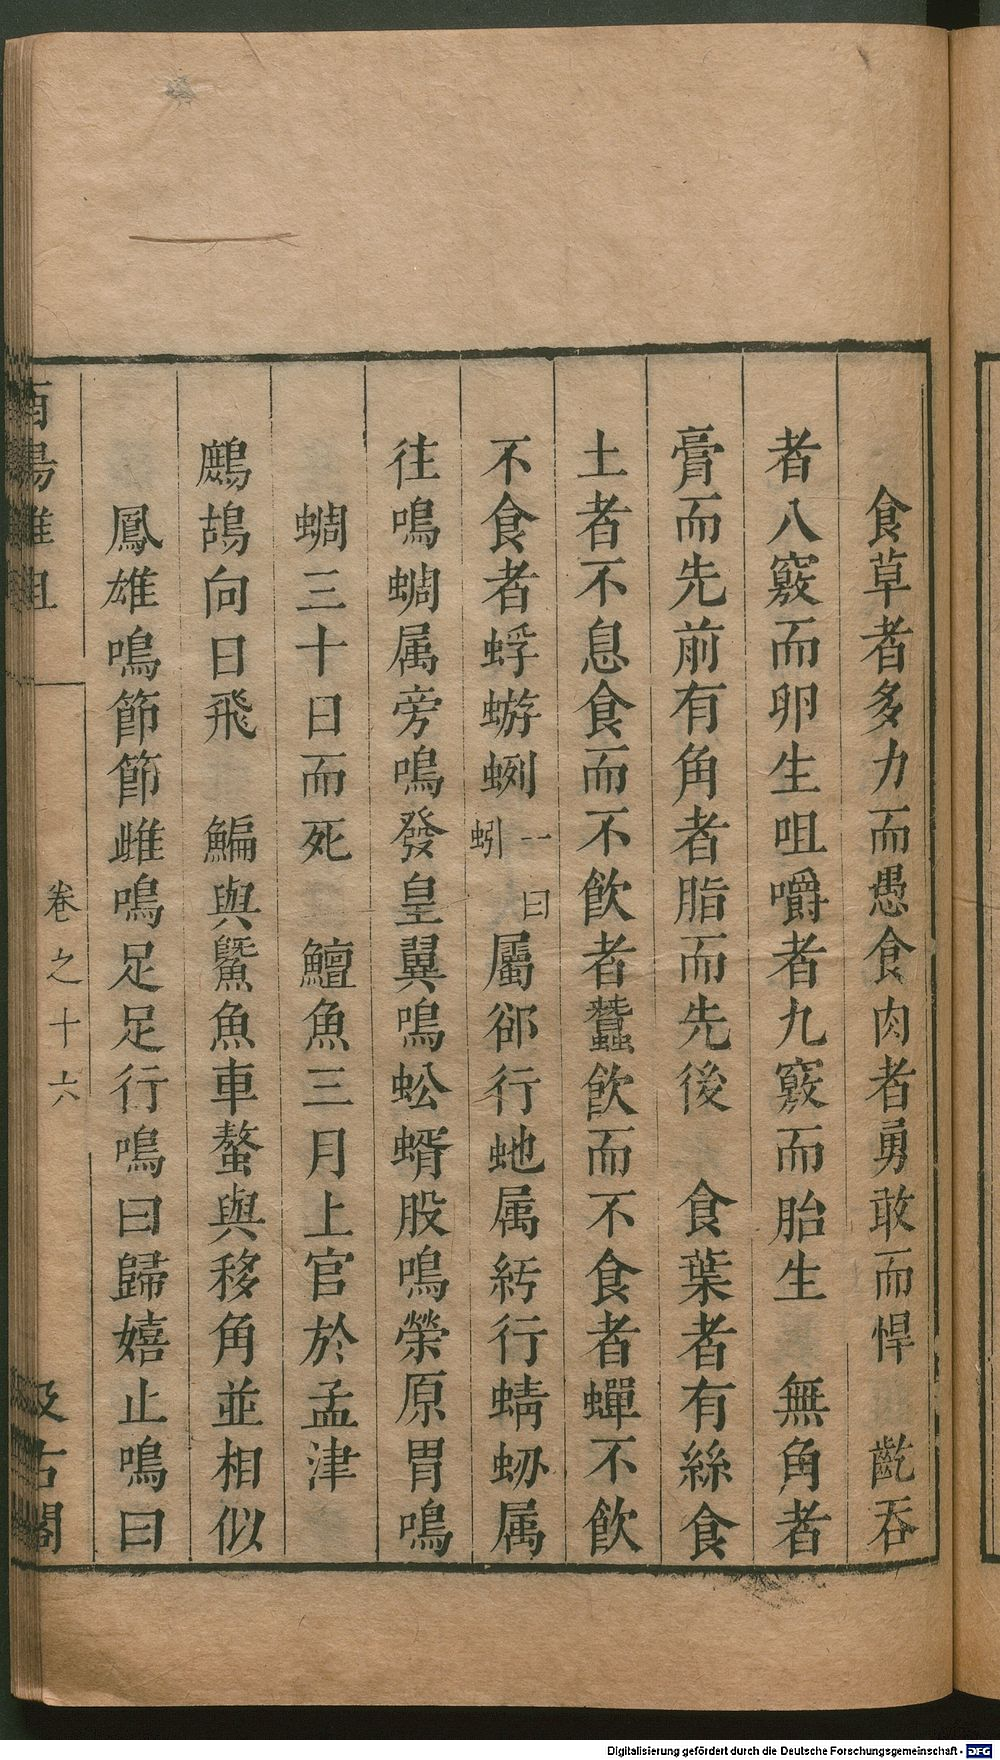 食草者多力而愚食肉者勇敢而悍　齕吞
者八竅而卵生咀嚼者九竅而胎生　無角者
膏而先前有角者脂而先後　食葉者有絲食
土者不息食而不飲者蠶飲而不食者蟬不飲
不食者蜉蝣蛚一曰蚓屬郤行蚰属紆行蜻蛚属
往鳴蜩属旁鳴發皇翼鳴蚣蝑股鳴榮原胃鳴
蜩三十日而死　鱣魚三月上官於孟津
鷓鴣向日飛　鯿與鱀魚車螯與移角並相似
鳳雄鳴節節雌鳴足足行鳴曰歸嬉止鳴曰
酉陽雜俎
卷之十六
汲古閣
Digitalisierung gefördert durch die Deutsche Forschungsgemeinschaft - DFG